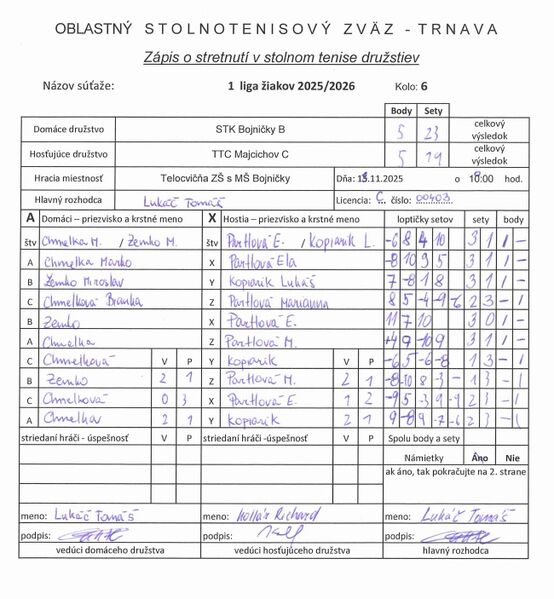 OBLASTNÝ STOLNOTENISOVÝ ZVÄZ - TRNAVA
Zápis o stretnutí v stolnom tenise družstiev
Názov súťaže: 1 liga žiakov 2025/2026 Kolo: 6
Body Sety
Domáce družstvo STK Bojničky B 5 23 celkový výsledok
Hosťujúce družstvo TTC Majcichov C 5 19 celkový výsledok
Hracia miestnosť Telocvičňa ZŠ s MŠ Bojničky Dňa: .11.2025 o :00 hod.
Hlavný rozhodca Lukáč Tomáš Licencia: C číslo: 00403
A Domáci – priezvisko a krstné meno X Hostia – priezvisko a krstné meno loptičky setov sety body
štv Chmelka M. / Žemko M. štv Partlová E. / Kopiarik L. -6 8 4 10 3 1 1 -
A Chmelka Marko X Partlová Ela -8 10 9 5 3 1 1 -
B Žemko Miroslav Y Kopiarik Lukáš 7 -8 1 8 3 1 1 -
C Chmelková Branka Z Partlová Marianna 8 5 -4 -9 -6 2 3 - 1
B Žemko X Partlová E. 11 7 10 3 0 1 -
A Chmelka Z Partlová M. 9 -10 9 3 1 1 -
C Chmelková V P Y Kopiarik V P -6 5 -6 -8 1 3 - 1
B Žemko 2 1 Z Partlová M. 2 1 8 3 1 3 - 1
C Chmelková 0 3 X Partlová E. 1 2 -9 5 -3 9 -9 2 3 - 1
A Chmelka 2 1 Y Kopiarik 2 1 9 -8 9 -7 -6 2 3 - 1
striedaní hráči - úspešnosť V P striedaní hráči -úspešnosť V P Spolu body a sety
Námietky Áno Nie
ak áno, tak pokračujte na 2. strane
meno: Lukáč Tomáš meno: Kollár Richard meno: Lukáč Tomáš
podpis: podpis: podpis:
vedúci domáceho družstva vedúci hosťujúceho družstva hlavný rozhodca